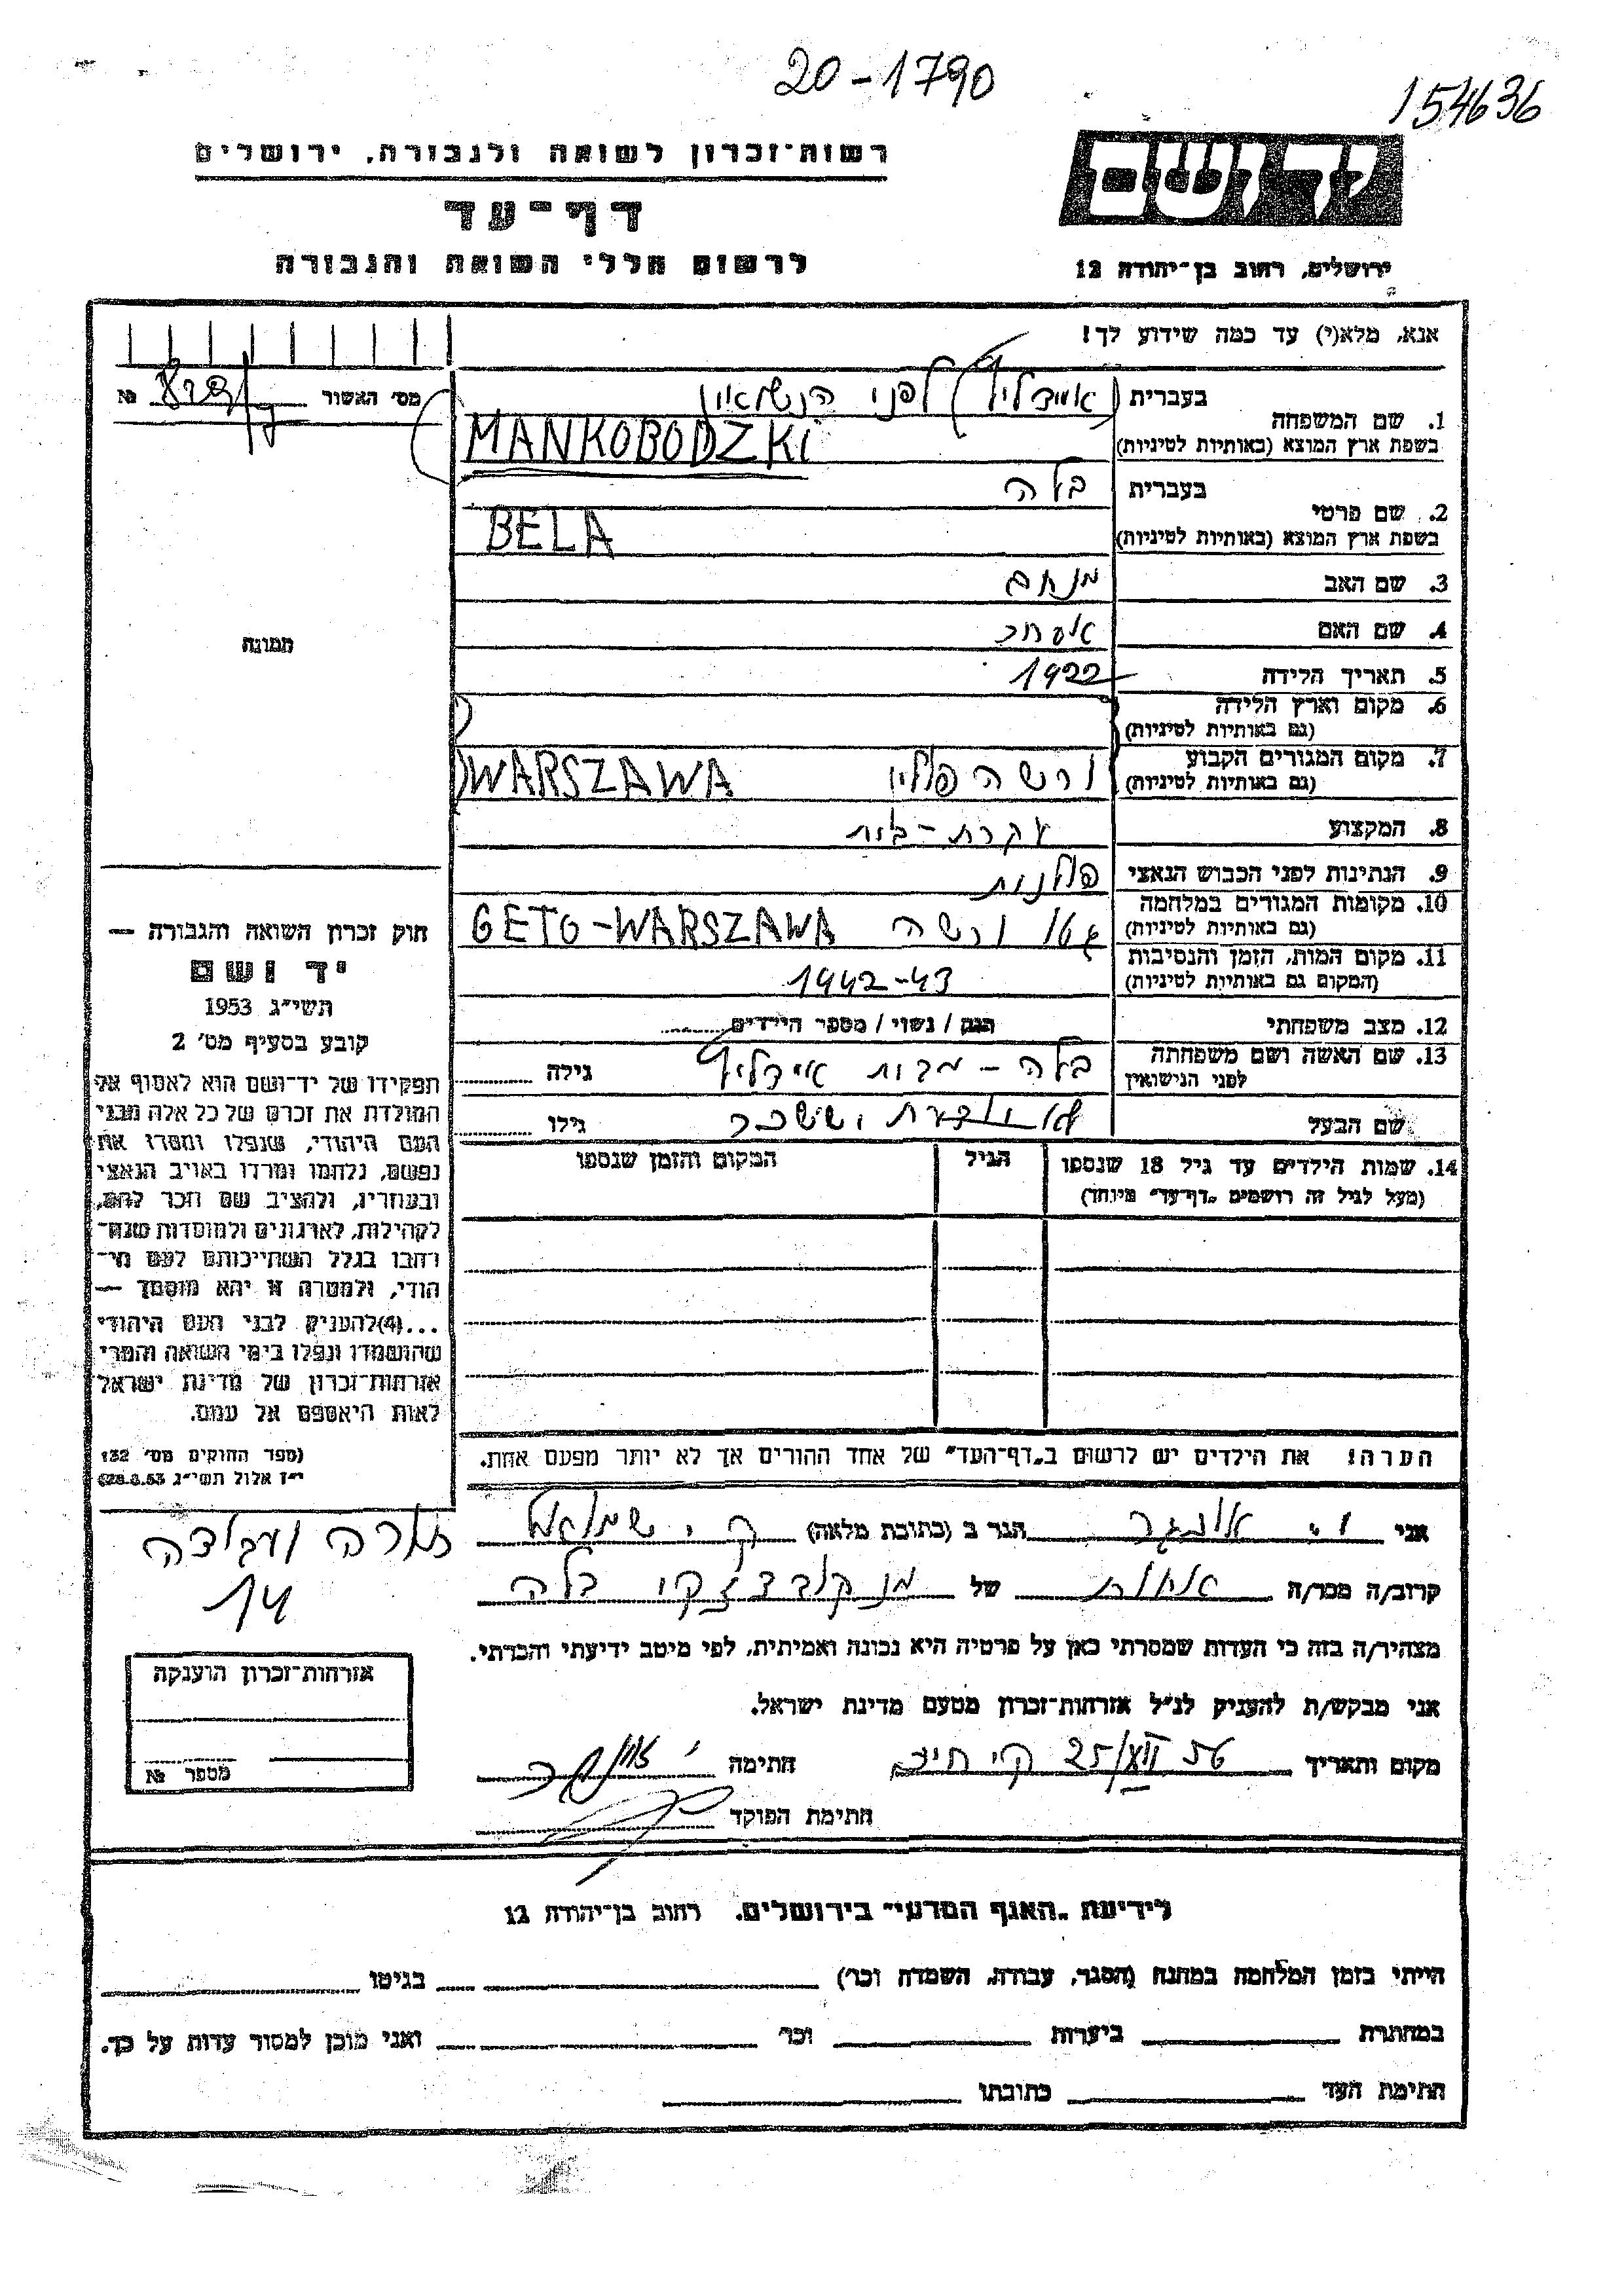 20-1790
154636
רשות־זכרון לשואה ולגבורה, ירושלים
יד ושם
דף־עד
לרשום חללי השואה והגבורה
ירושלים, רחוב בן־יהודה 12
אנא, מלא(י) עד כמה שידוע לך!
מס' האשור №
בעברית (אײדליץ) לפני הנשואין
1. שם המשפחה
בשפת ארץ המוצא (באותיות לטיניות) MANKOBODZKI
בעברית בלה
2. שם פרטי
בשפת ארץ המוצא (באותיות לטיניות) BELA
3. שם האב מנחם
4. שם האם
תמונה
5. תאריך הלידה 1922
6. מקום וארץ הלידה
(גם באותיות לטיניות)
7. מקום המגורים הקבוע ורשה פולין WARSZAWA
(גם באותיות לטיניות)
8. המקצוע עקרת-בית
9. הנתינות לפני הכבוש הנאצי פולנית
10. מקומות המגורים במלחמה גטו ורשה GETO-WARSZAWA
(גם באותיות לטיניות)
11. מקום המות, הזמן והנסיבות 1942-43
(המקום גם באותיות לטיניות)
12. מצב משפחתי רווק / נשוי / מספר הילדים
13. שם האשה ושם משפחתה לפני הנישואין בלה - מבית אידליץ גילה
שם הבעל יששכר גילו
14. שמות הילדים עד גיל 18 שנספו הגיל המקום והזמן שנספו
(מעל לגיל זה רושמים „דף־עד" מיוחד)
חוק זכרון השואה והגבורה —
יד ושם
תשי"ג 1953
קובע בסעיף מס' 2
תפקידו של יד־ושם הוא לאסוף אל
המולדת את זכרם של כל אלה מבני
העם היהודי, שנפלו ומסרו את
נפשם, נלחמו ומרדו באויב הנאצי
ובעוזריו, ולהציב שם וזכר להם,
לקהילות, לארגונים ולמוסדות שנח־
רבו בגלל השתייכותם לעם הי־
הודי, ולמטרה זו יהא מוסמך —
...(4)להעניק לבני העם היהודי
שהושמדו ונפלו בימי השואה והמרי
אזרחות־זכרון של מדינת ישראל
לאות היאספם אל עמם.
(ספר החוקים מס' 132
י"ז אלול תשי"ג 28.8.53)
הערה! את הילדים יש לרשום ב„דף־העד" של אחד ההורים אך לא יותר מפעם אחת.
אני י. אונגר הגר ב (כתובת מלאה) ק. י. שמואל
תורה ועבודה
14
קרוב/ה מכר/ה אחות של מנקובדזקי בלה
מצהיר/ה בזה כי העדות שמסרתי כאן על פרטיה היא נכונה ואמיתית, לפי מיטב ידיעתי והכרתי.
אני מבקש/ת להעניק לנ"ל אזרחות־זכרון מטעם מדינת ישראל.
אזרחות־זכרון הוענקה
מספר №
מקום ותאריך חתימה י אונגר
חתימת הפוקד
לידיעת „האגף המדעי" בירושלים, רחוב בן־יהודה 12
הייתי בזמן המלחמה במחנה (הסגר, עבודה, השמדה וכו') בגיטו
במחתרת ביערות וכו' ואני מוכן למסור עדות על כך.
חתימת העד כתובתו